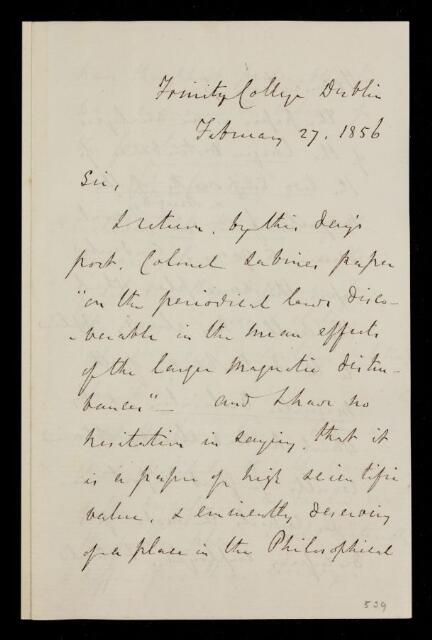 Trinity College Dublin
February 27, 1856
Sir,
I return, by this day's
post, Colonel Sabine's paper
"on the periodical laws disco-
-verable in the mean effects
of the larger magnetic distur-
bances" — and I have no
hesitation in saying, that it
is a paper of high scientific
value, & eminently deserving
of a place in the Philosophical
539